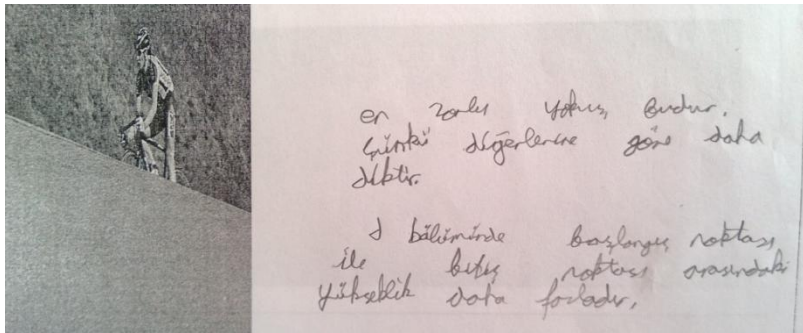 en zorlu yokuş budur.
Çünkü diğerlerine göre daha
diktir.
d bölümünde başlangıç noktası
ile bitiş noktası arasındaki
yükseklik daha fazladır.